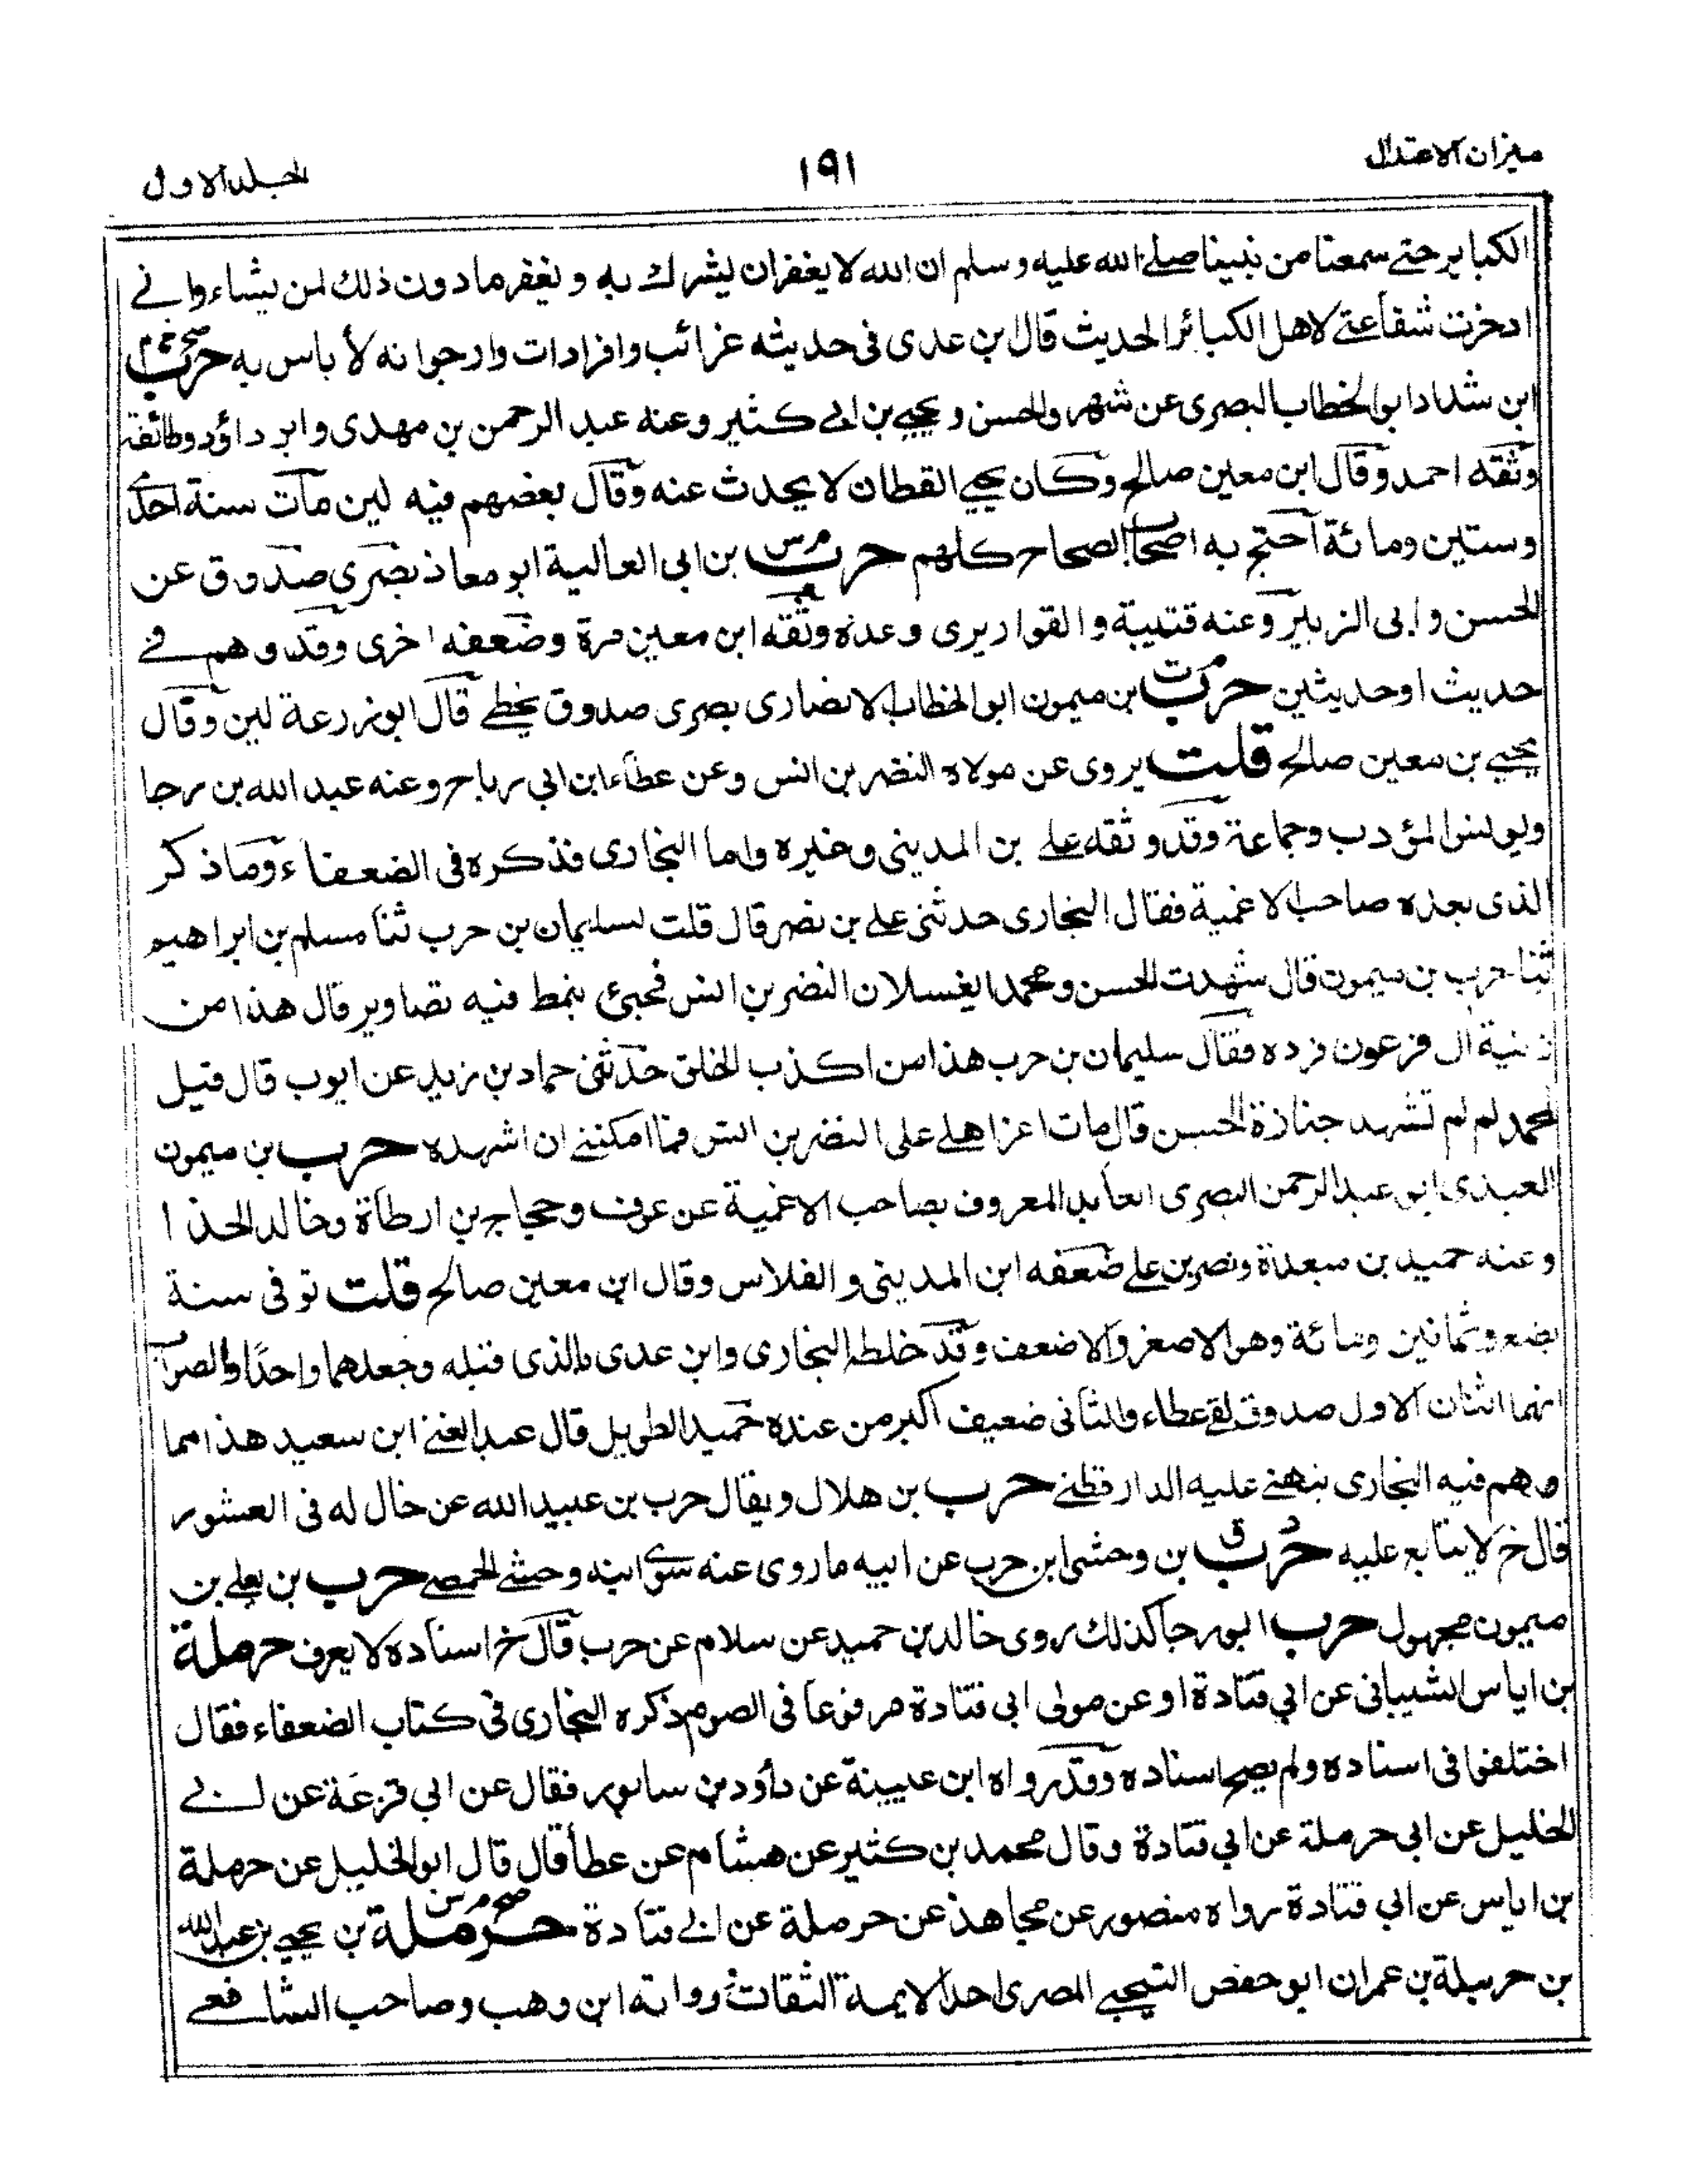 ميزان الاعتدال
١٩١
المجلد الاول
الكباير حتى سمعنا من نبينا صلى الله عليه وسلم ان الله لا يغفر ان يشرك به ويغفر ما دون ذلك لمن يشاء واني
ادخرت شفاعتي لاهل الكبائر الحديث قال بن عدى فى حديثه غرائب وافرادات وارجوا نه لا باس به حرب
ابن شداد ابو الخطاب البصرى عن شهر والحسن ويحيى بن ابى كثير وعنه عبد الرحمن بن مهدى وابو داؤد وطائفة
وثقه احمد وقال ابن معين صالح وكان يحيى القطان لا يحدث عنه وقال بعضهم فيه لين مات سنة احدى
وستين ومائة احتج به اصحاب الصحاح كلهم حرب بن ابى العالية ابو معاذ بصرى صدوق عن
الحسن وابى الزبير وعنه قتيبة والقواريرى وعدة وثقه ابن معين مرة وضعفه اخرى وقد وهم فى
حديث او حديثين حرب بن ميمون ابو الخطاب الانصارى بصرى صدوق يخطى قال ابو زرعة لين وقال
يحيى بن معين صالح قلت يروى عن مولاه النضر بن انس وعن عطاء ابن ابى رباح وعنه عبد الله بن رجا
ويونس المؤدب وجماعة وقد وثقه على بن المدينى وغيره واما البخارى فذكره فى الضعفاء وما ذكر
الذى بعده صاحب الاغمية فقال البخارى حدثنى على بن نصر قال قلت لسليمان بن حرب ثنا مسلم بن ابراهيم
ثنا حرب بن ميمون قال شهدت الحسن ومحمدا يغسلان النضر بن انس فجئ بنمط فيه تصاوير قال هذا من
زينة ال فرعون فرده فقال سليمان بن حرب هذا من اكذب الخلق حدثنى حماد بن زيد عن ايوب قال قيل
لمحمد لم لم تشهد جنازة الحسن قال مات اعز اهلى على النضر بن انس فما امكننى ان اشهده حرب بن ميمون
العبدى ابو عبد الرحمن البصرى العابد المعروف بصاحب الاغمية عن عوف وحجاج بن ارطاة وخالد الحذا
وعنه حميد بن مسعدة ونصر بن على ضعفه ابن المدينى والفلاس وقال ابن معين صالح قلت توفى سنة
بضع وثمانين ومائة وهو الاصغر والاضعف وقد خلطه البخارى وابن عدى بالذى قبله وجعلهما واحدا والصواب
انهما اثنان الاول صدوق لقى عطاء والثانى ضعيف اكبر من عنده حميد الطويل قال عبد الغنى ابن سعيد هذا مما
وهم فيه البخارى نبهنى عليه الدارقطنى حرب بن هلال ويقال حرب بن عبيد الله عن خال له فى العشور
قال خ لا يتابع عليه حرب بن وحشى ابن حرب عن ابيه ما روى عنه سوى ابنه وحشى الحمصى حرب بن يعلى بن
ميمون مجهول حرب ابو رجا كذلك روى خالد بن حميد عن سلام عن حرب قال خ اسناده لا يعرف حرملة
بن اياس الشيبانى عن ابى قتادة او عن مولى ابى قتادة مرفوعا فى الصوم ذكره البخارى فى كتاب الضعفاء فقال
اختلفوا فى اسناده ولم يصح اسناده وقد رواه ابن عيينة عن داؤد بن سابور فقال عن ابى قزعة عن ابى
الخليل عن ابى حرملة عن ابى قتادة وقال محمد بن كثير عن هشام عن عطا قال قال ابو الخليل عن حرملة
بن اياس عن ابى قتادة رواه منصور عن مجاهد عن حرملة عن ابى قتادة حرملة بن يحيى بن عبد الله
بن حرملة بن عمران ابو حفص التجيبى المصرى احد الايمة الثقات ورواته ابن وهب وصاحب الشافعى